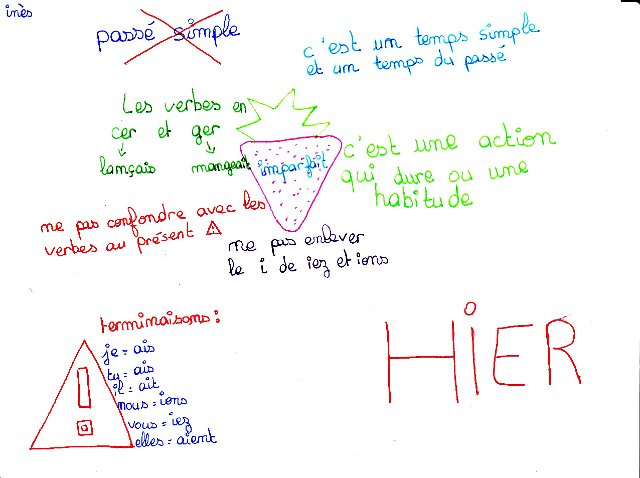 inès
passé simple
c'est un temps simple
et un temps du passé
Les verbes en
cer et ger
lançais mangeait
imparfait
c'est une action
qui dure ou une
habitude
ne pas confondre avec les
verbes au présent
ne pas enlever
le i de iez et ions
terminaisons :
je = ais
tu = ais
il = ait
nous = ions
vous = iez
elles = aient
HiER